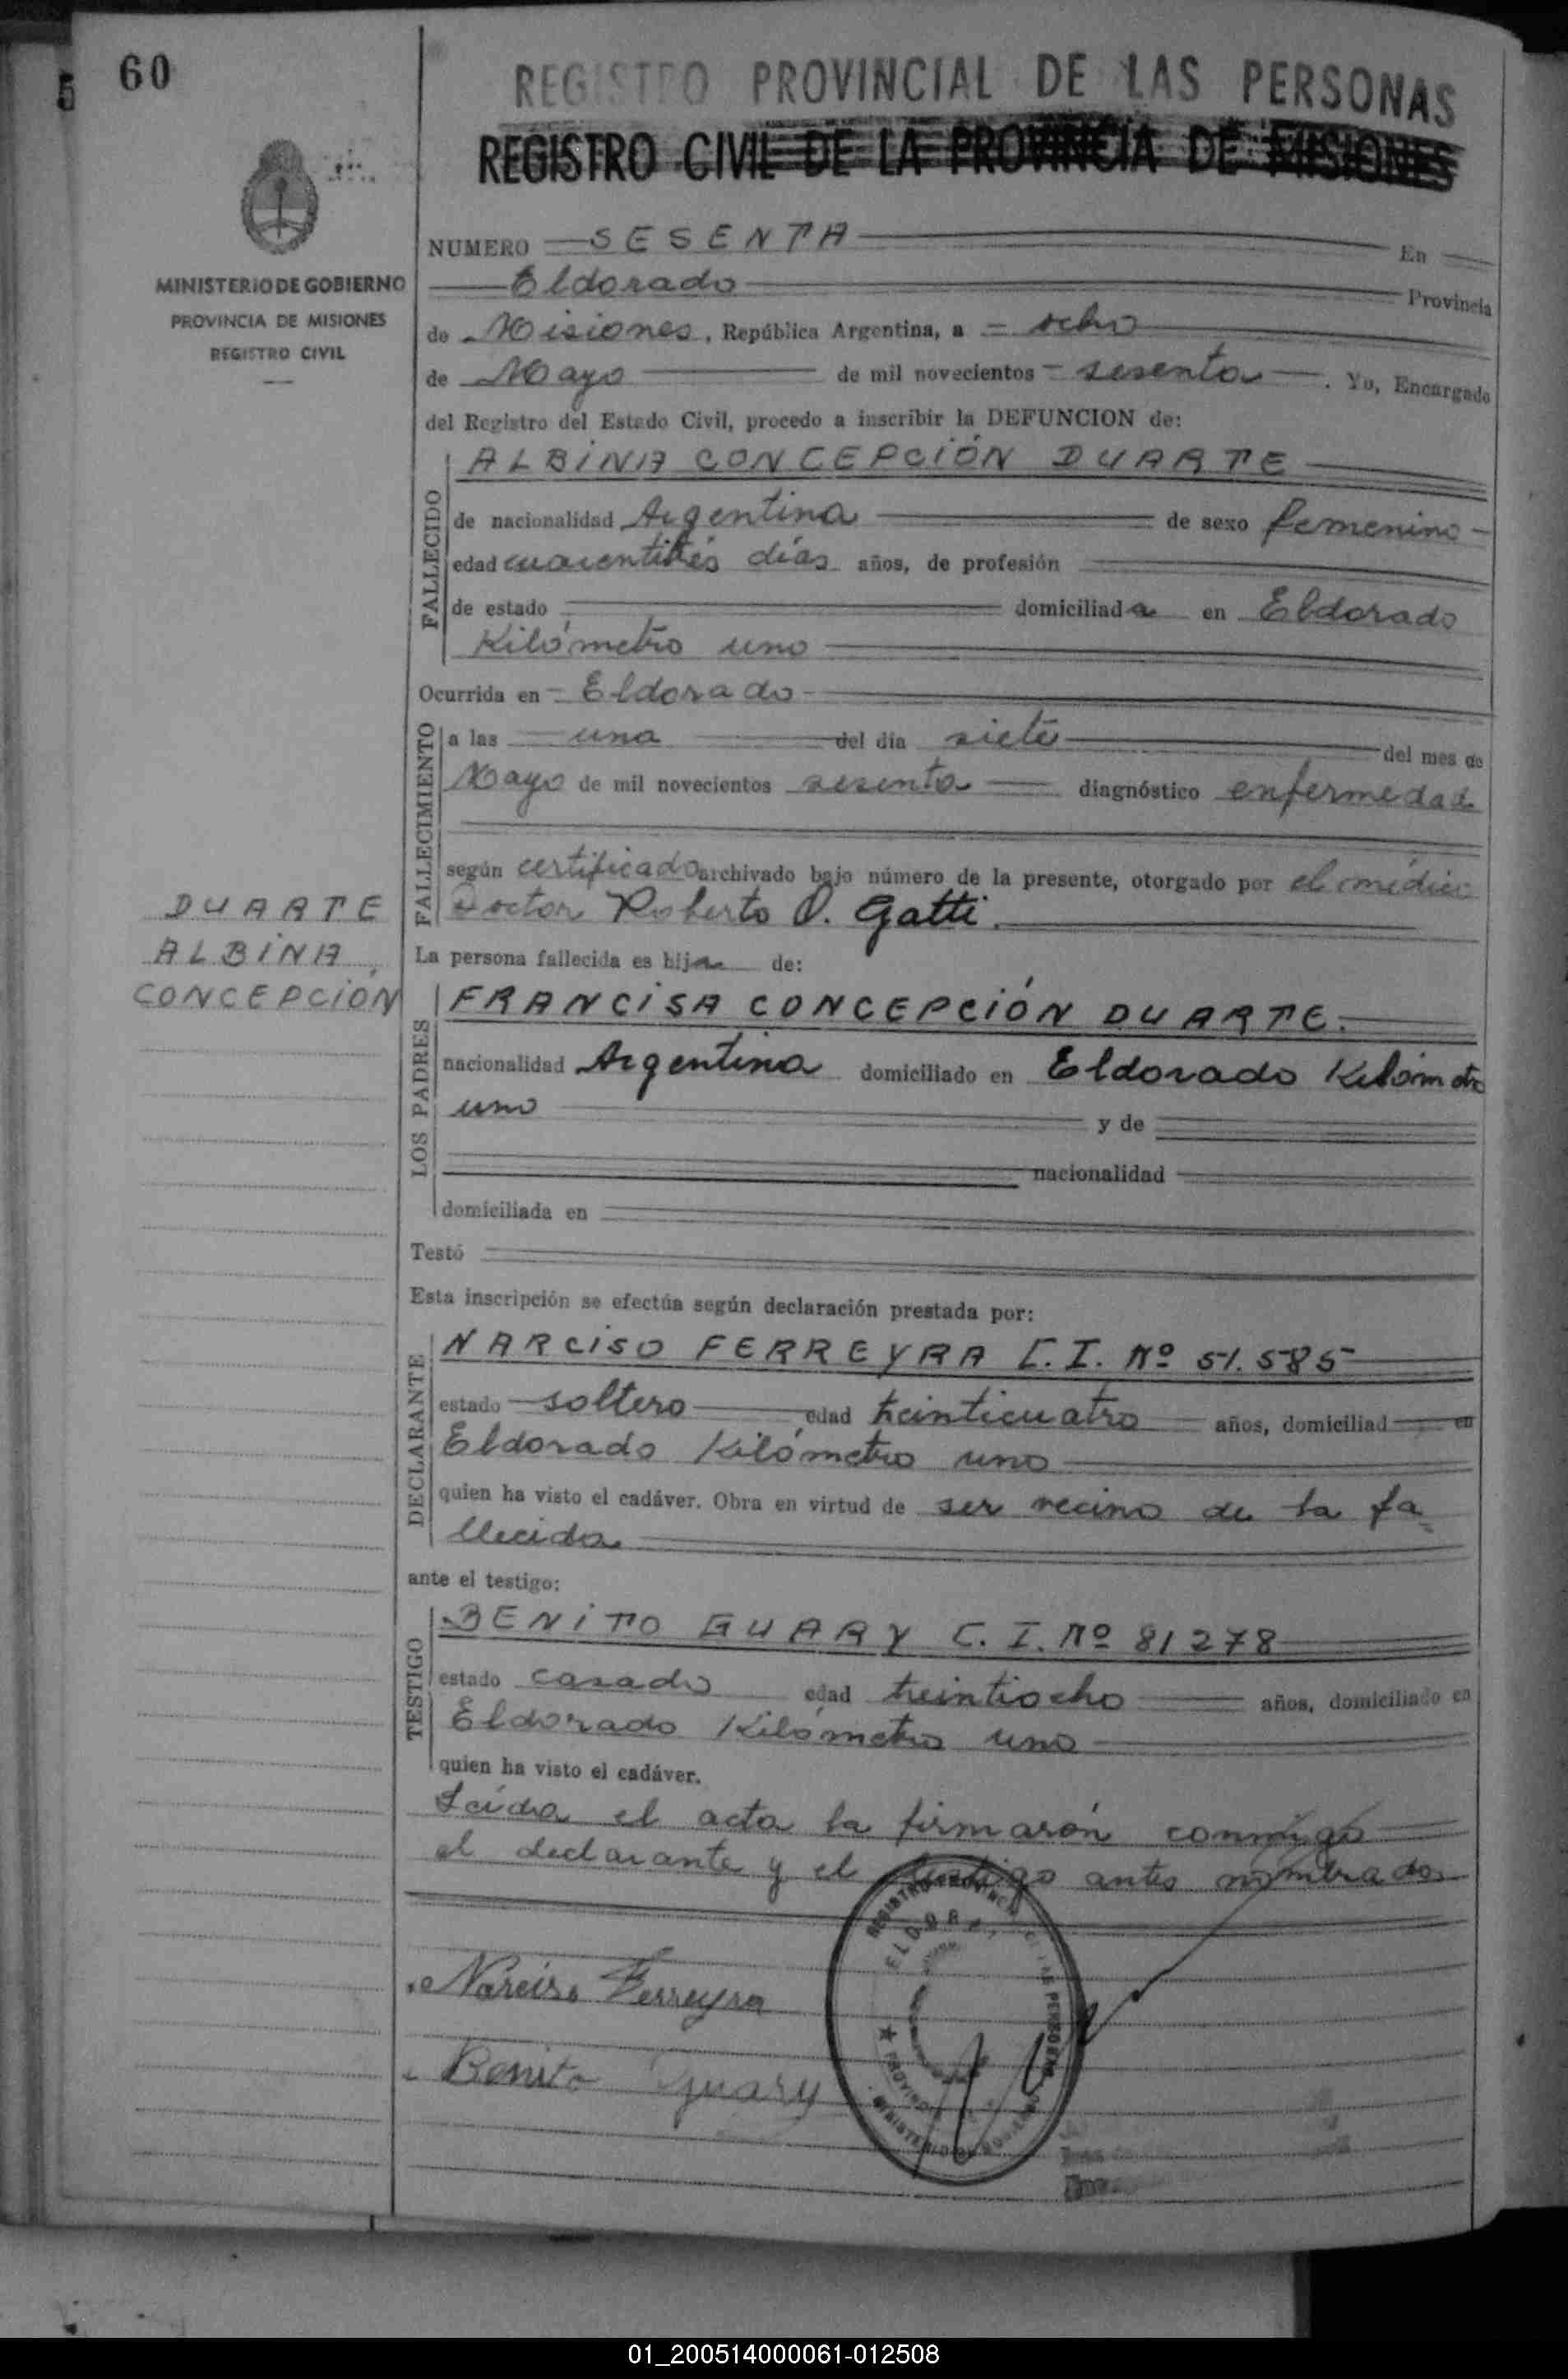 60
5
REGISTRO PROVINCIAL DE LAS PERSONAS
REGISTRO CIVIL DE LA PROVINCIA DE MISIONES
MINISTERIO DE GOBIERNO
PROVINCIA DE MISIONES
REGISTRO CIVIL
NUMERO SESENTA En
Eldorado Provincia
de Misiones, República Argentina, a ocho
de Mayo de mil novecientos sesenta. Yo, Encargado
del Registro del Estado Civil, procedo a inscribir la DEFUNCION de:
FALLECIDO
ALBINA CONCEPCIÓN DUARTE
de nacionalidad Argentina de sexo femenino
edad cuarentitrés días años, de profesión
de estado domiciliada en Eldorado
Kilómetro uno
Ocurrida en Eldorado
FALLECIMIENTO
a las una del día siete del mes de
Mayo de mil novecientos sesenta diagnóstico enfermedad
según certificado archivado bajo número de la presente, otorgado por el médico
Doctor Roberto O. Gatti.
DUARTE
ALBINA
CONCEPCIÓN
La persona fallecida es hija de:
LOS PADRES
FRANCISA CONCEPCIÓN DUARTE.
nacionalidad Argentina domiciliado en Eldorado Kilómetro
uno y de
nacionalidad
domiciliada en
Testó
Esta inscripción se efectúa según declaración prestada por:
DECLARANTE
NARCISO FERREYRA C.I. Nº 51.585
estado soltero edad treinticuatro años, domiciliad en
Eldorado Kilómetro uno
quien ha visto el cadáver. Obra en virtud de ser vecino de la fa
llecida
ante el testigo:
TESTIGO
BENITO GUARY C.I. Nº 81278
estado casado edad treintiocho años, domiciliado en
Eldorado Kilómetro uno
quien ha visto el cadáver.
Leída el acta la firmarón conmigo
el declarante y el testigo antes nombrados
Narciso Ferreyra
Benito Guary
REGISTRO PROVINCIAL DE LAS PERSONAS
01_200514000061-012508